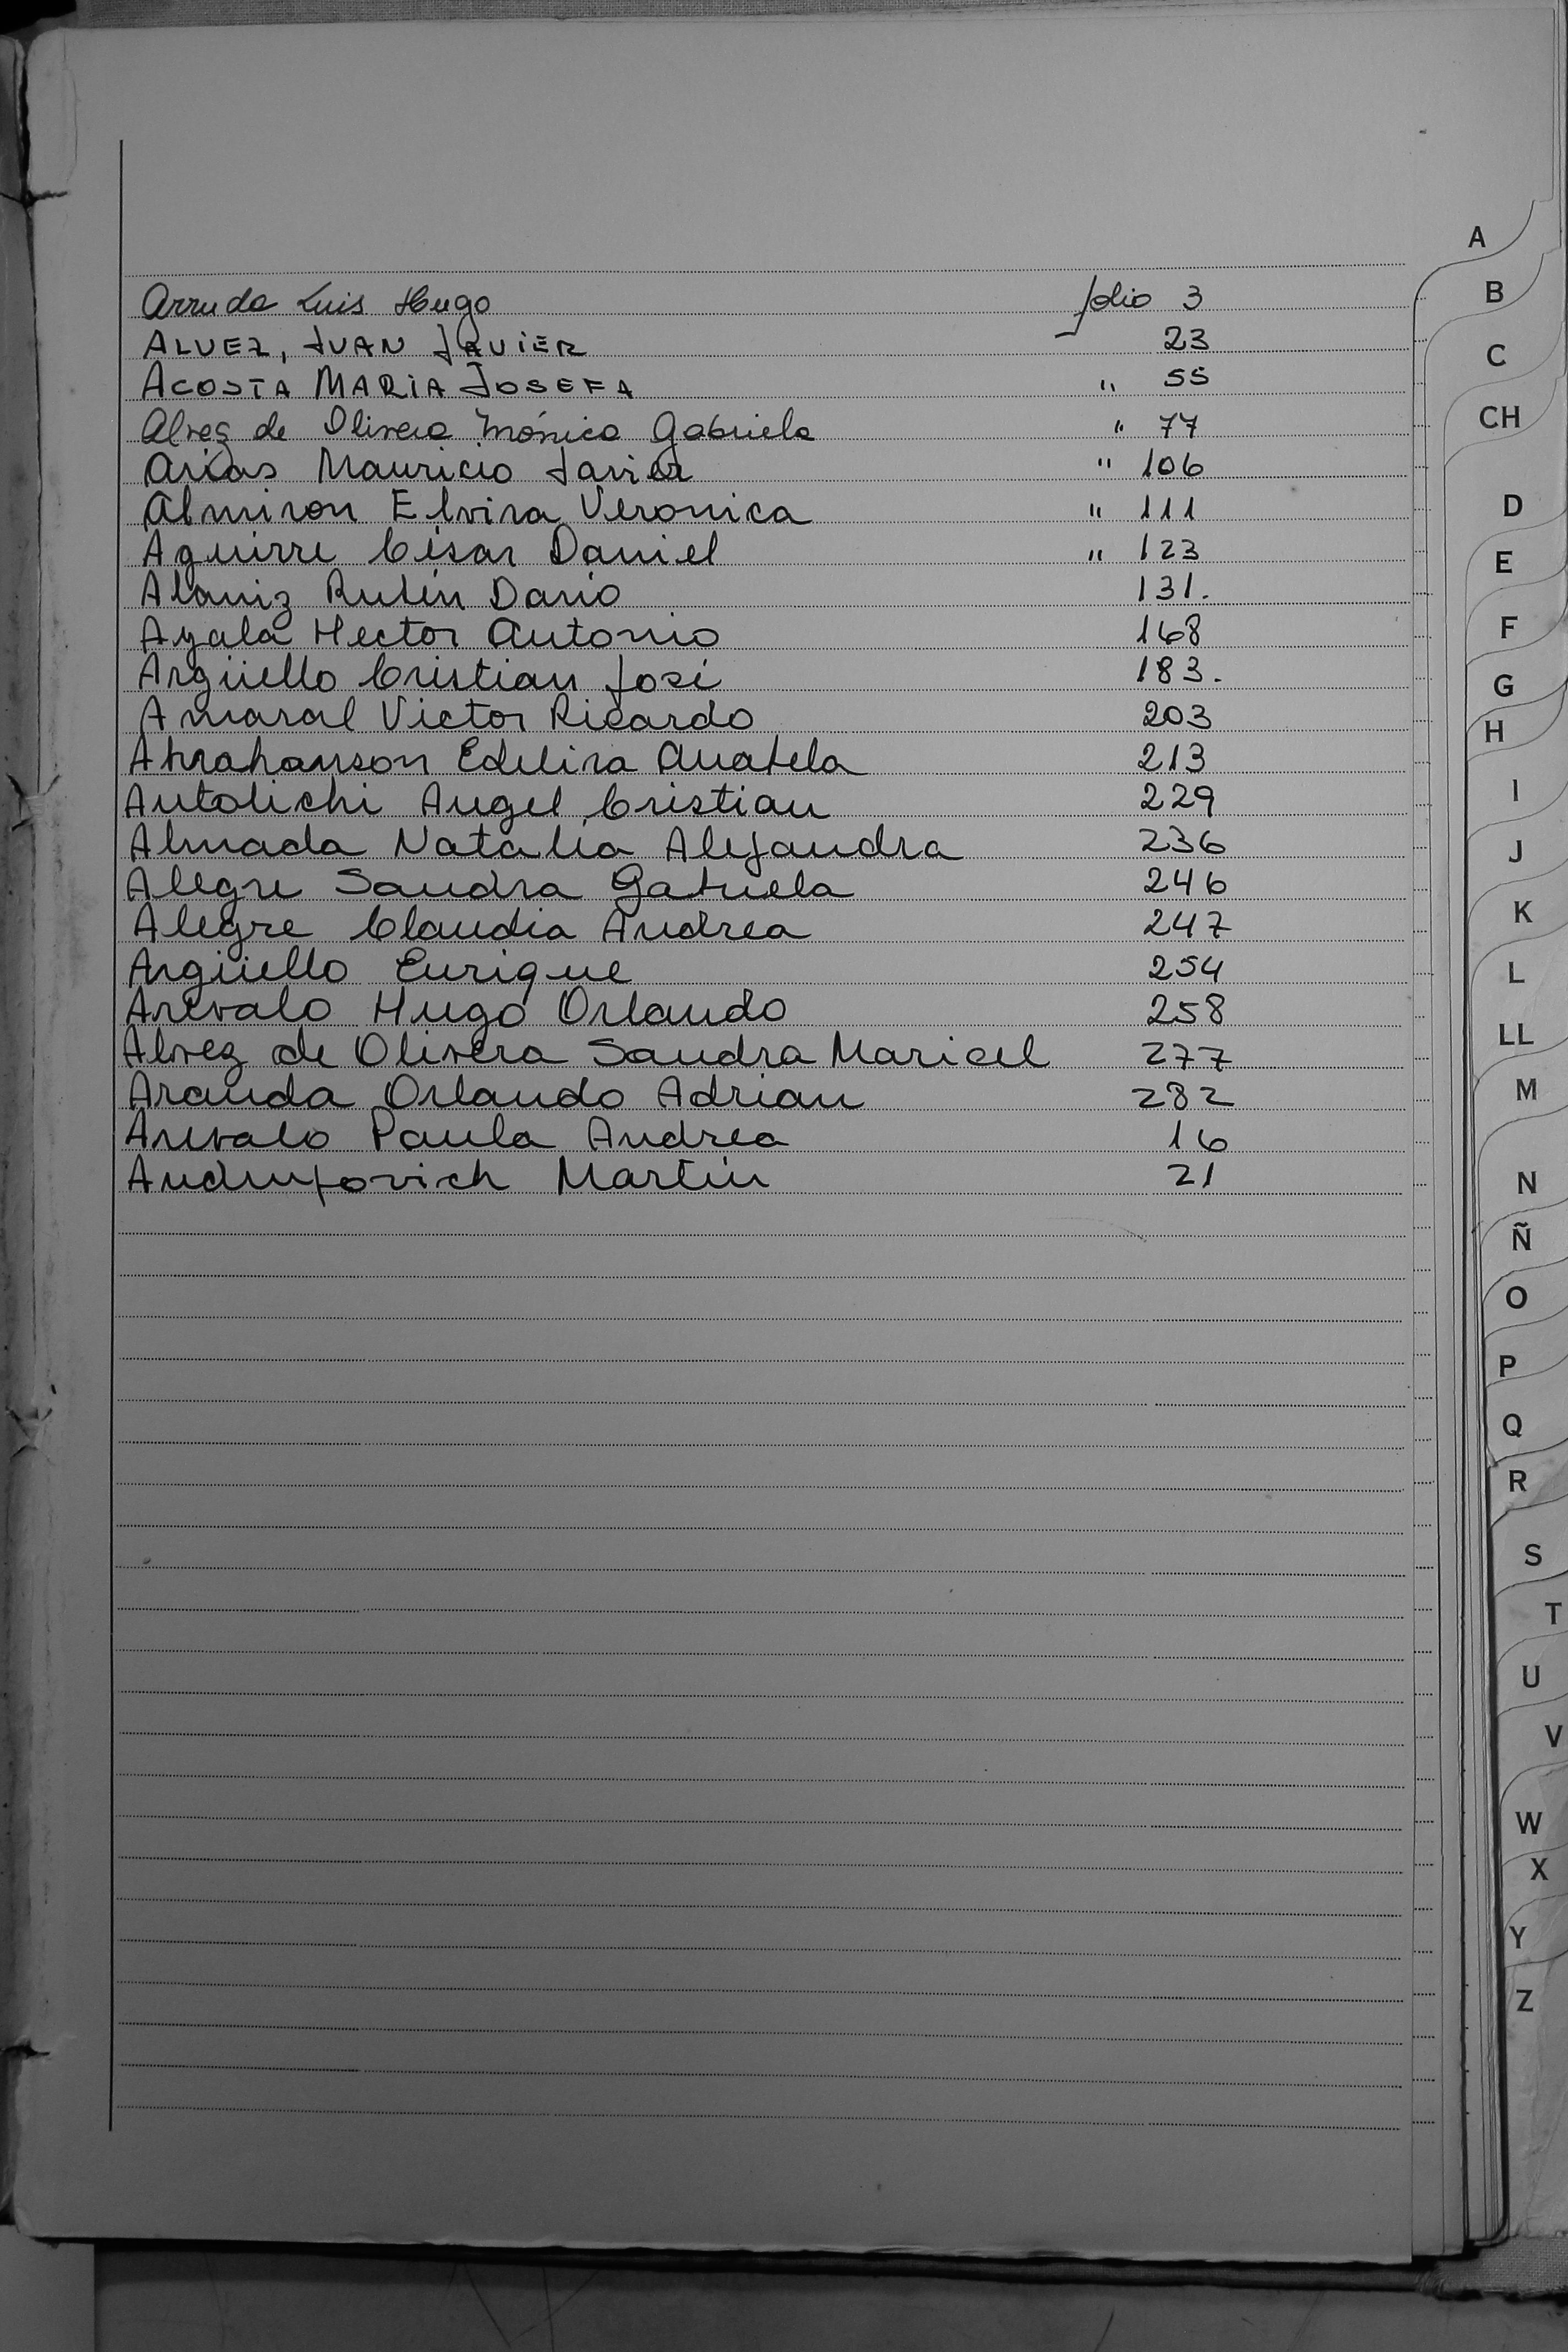 Arruda Luis Hugo folio 3
ALVEZ, JUAN JAVIER 23
ACOSTA MARIA JOSEFA " 55
Alvez de Olivera Mónica Gabriela " 77
Arias Mauricio Javier " 106
Almiron Elvira Veronica " 111
Aguirre César Daniel " 123
Alaniz Rubén Dario 131.
Ayala Hector Antonio 168
Argüello Cristian José 183.
Amaral Victor Ricardo 203
Abrahanson Edelira 213
Autolichi Angel Cristian 229
Almada Natalia Alejandra 236
Alegre Sandra Gabriela 246
Alegre Claudia Andrea 247
Argüello Enrique 254
Arevalo Hugo Orlando 258
Alvez de Olivera Sandra Maricel 277
Aranda Orlando Adrian 282
Arevalo Paula Andrea 16
Martín 21
A
B
C
CH
D
E
F
G
H
I
J
K
L
LL
M
N
Ñ
O
P
Q
R
S
T
U
V
W
X
Y
Z